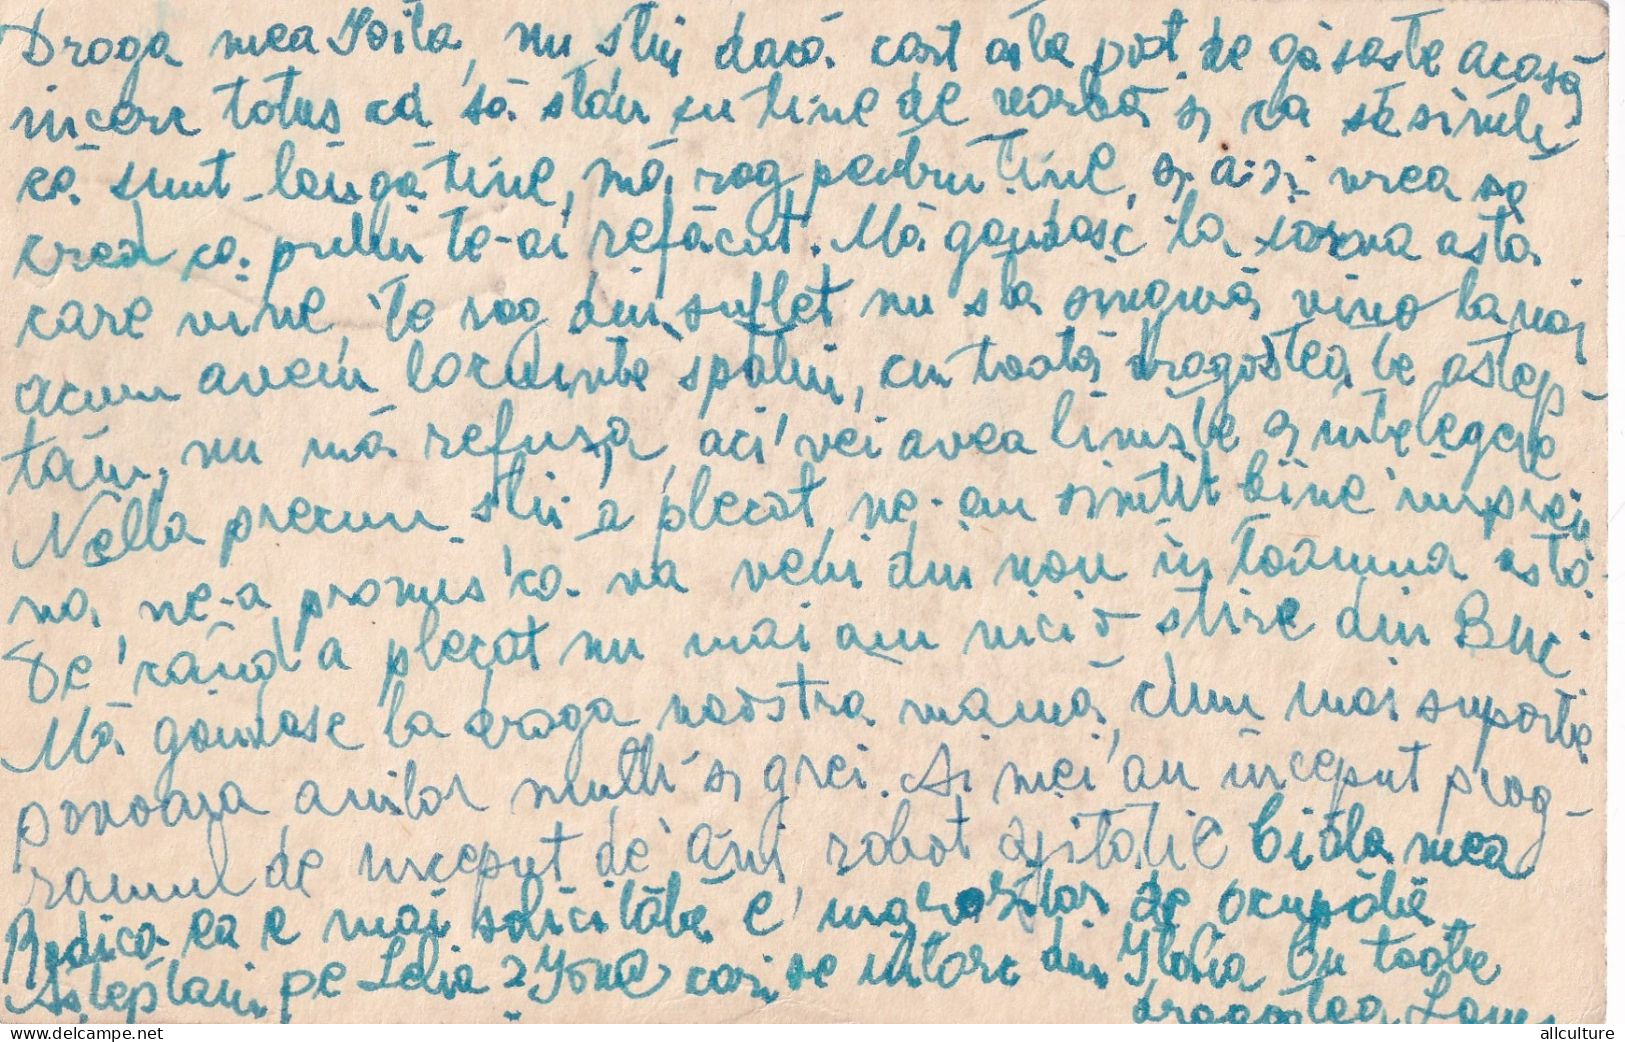 Draga mea Voita, nu stiu dacă cart asta post. te găseste acasă
incerc totus ca să stau cu tine de vorbă și ca să simti
că sunt lângă tine, mă rog pentru tine, și asi vrea sa
cred că putin te-ai refăcut. Mă gandesc la iarna asta
care vine, te rog din suflet nu sta singură vino la noi
acum avem locuinte spatiu, cu toată dragostea te astep-
tăm, nu mă refuza, aci vei avea liniște și intelegere
Nella precum stii a plecat, ne-am simtit bine impreu
nă, ne-a promis că va veni din nou in toamna asta.
De când a plecat nu mai am nici o stire din Buc.
Mă gandesc la draga noastra mamă, cum mai suporta
povoara anilor multi și grei. Ai mei au inceput prog-
ramul de inceput de an, robot agitatie biata mea
Rodica ea e mai solicitată e ingrozitor de ocupată
Asteptam pe Lelia și care se intorc din Italia Cu toate
dragostea
allculture